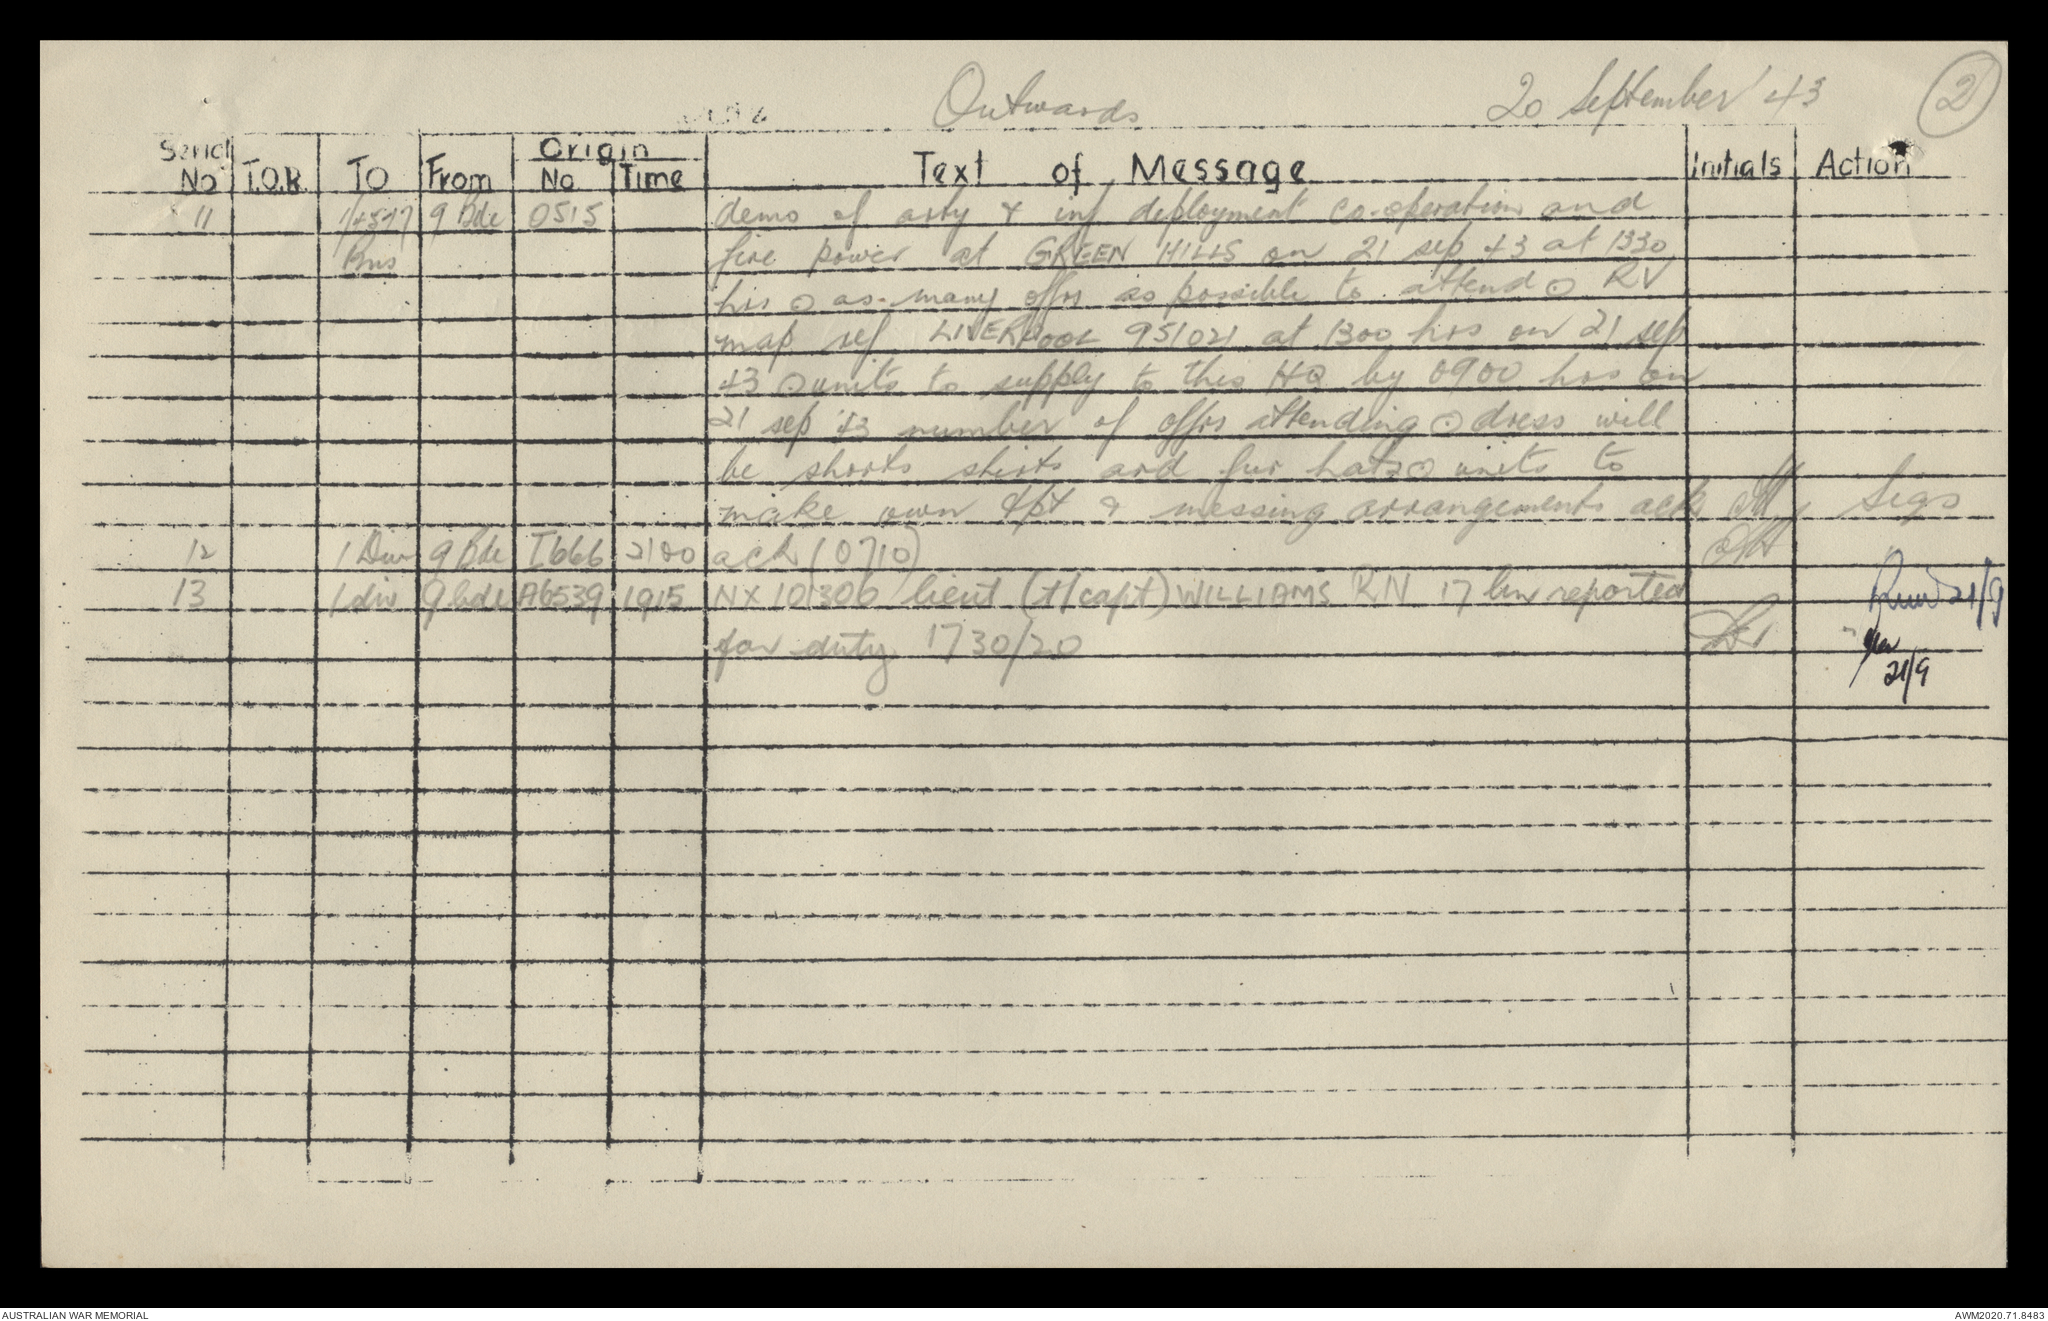 Outwards 20 September '43 2
Serial No T.O.R. TO From Origin No Time Text of Message Initials Action
11 9 Bde 0515 demo of arty & inf deployment co-operation and
Bns fire power at GREEN HILLS on 21 sep 43 at 1330
hrs ⊙ as many offrs as possible to attend ⊙ RV
map ref LIVERPOOL 951021 at 1300 hrs on 21 sep
43 ⊙ units to supply to this HQ by 0900 hrs on
21 sep 43 number of offrs attending ⊙ dress will
be shorts shirts and fur hats ⊙ units to
make own tpt & messing arrangements ack Sigs
12 1 Div 9 Bde I666 2100 ack (0710)
13 1 div 9 bde A6539 1915 NX 101306 lieut (t/capt) WILLIAMS RN 17 bn reported 21/9
for duty 1730/20
21/9
AUSTRALIAN WAR MEMORIAL AWM2020.71.8483